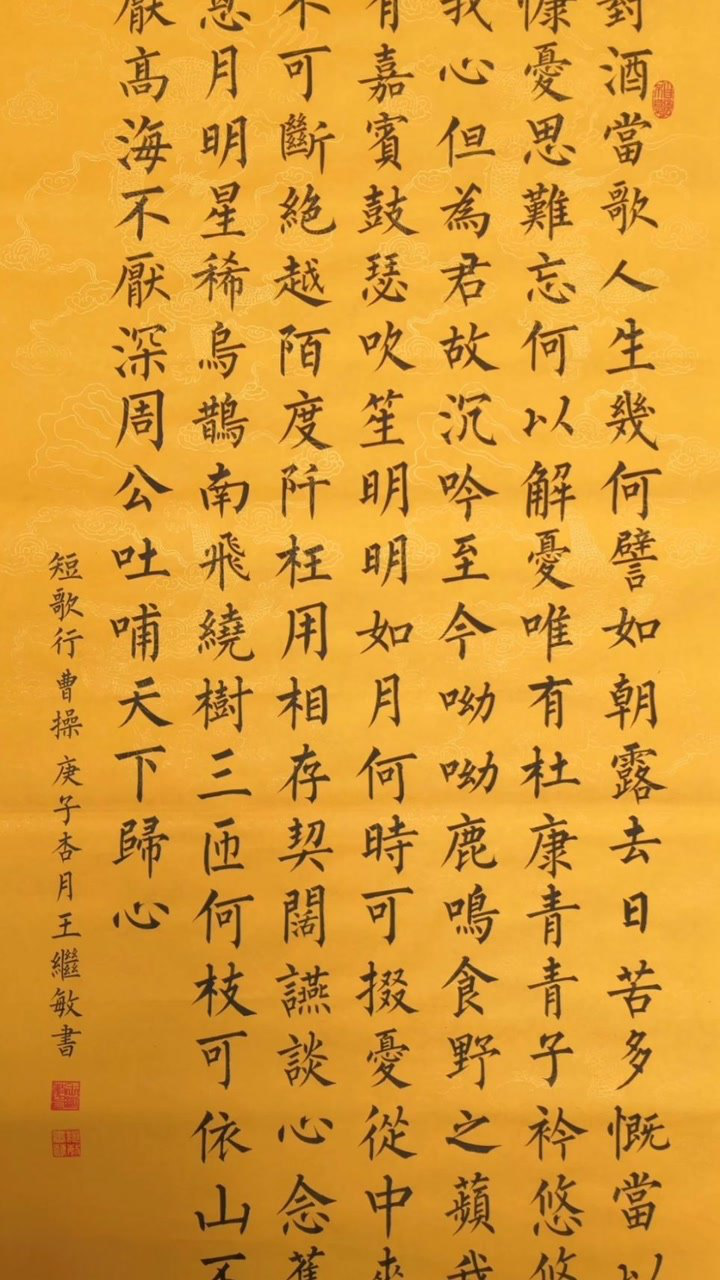 對酒當歌人生幾何譬如朝露去日苦多慨當以
慷憂思難忘何以解憂唯有杜康青青子衿悠悠
我心但為君故沉吟至今呦呦鹿鳴食野之蘋我
有嘉賓鼓瑟吹笙明明如月何時可掇憂從中來
不可斷絕越陌度阡枉用相存契闊讌談心念舊
恩月明星稀烏鵲南飛繞樹三匝何枝可依山不
厭高海不厭深周公吐哺天下歸心
短歌行曹操庚子杏月王繼敏書